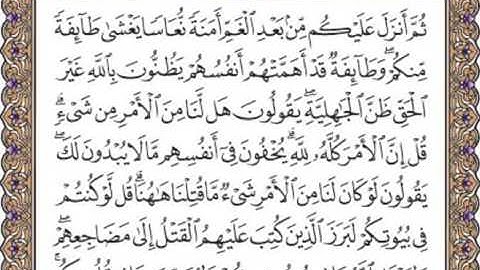 ثُمَّ أَنزَلَ عَلَيْكُم مِّنۢ بَعْدِ ٱلْغَمِّ أَمَنَةً نُّعَاسًا يَغْشَىٰ طَآئِفَةً
مِّنكُمْ ۖ وَطَآئِفَةٌ قَدْ أَهَمَّتْهُمْ أَنفُسُهُمْ يَظُنُّونَ بِٱللَّهِ غَيْرَ
ٱلْحَقِّ ظَنَّ ٱلْجَٰهِلِيَّةِ ۖ يَقُولُونَ هَل لَّنَا مِنَ ٱلْأَمْرِ مِن شَىْءٍ ۗ
قُلْ إِنَّ ٱلْأَمْرَ كُلَّهُۥ لِلَّهِ ۗ يُخْفُونَ فِىٓ أَنفُسِهِم مَّا لَا يُبْدُونَ لَكَ ۖ
يَقُولُونَ لَوْ كَانَ لَنَا مِنَ ٱلْأَمْرِ شَىْءٌ مَّا قُتِلْنَا هَٰهُنَا ۗ قُل لَّوْ كُنتُمْ
فِى بُيُوتِكُمْ لَبَرَزَ ٱلَّذِينَ كُتِبَ عَلَيْهِمُ ٱلْقَتْلُ إِلَىٰ مَضَاجِعِهِمْ ۖ